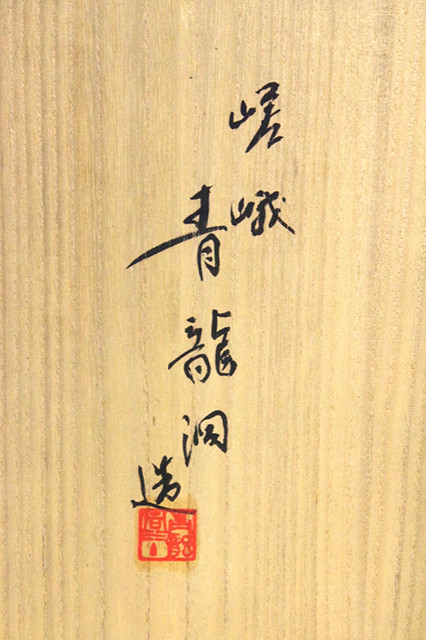 嵯峨
青龍洞
造